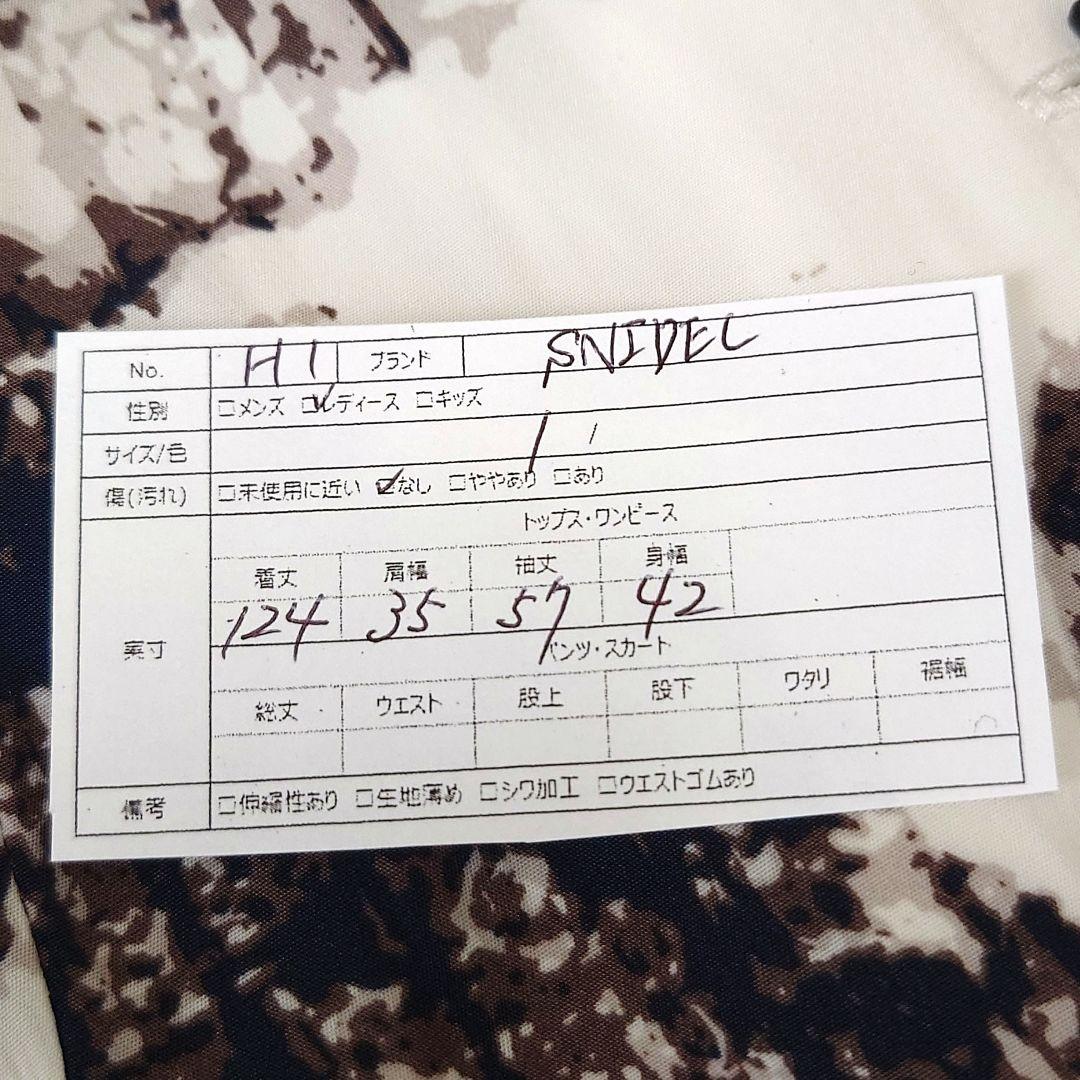 No. H1 ブランド SNIDEL
性別 □メンズ ☑レディース □キッズ
サイズ/色 1 /
傷(汚れ) □未使用に近い ☑なし □ややあり □あり
トップス・ワンピース
着丈 肩幅 袖丈 身幅
124 35 57 42
実寸
パンツ・スカート
総丈 ウエスト 股上 股下 ワタリ 裾幅
備考 □伸縮性あり □生地薄め □シワ加工 □ウエストゴムあり